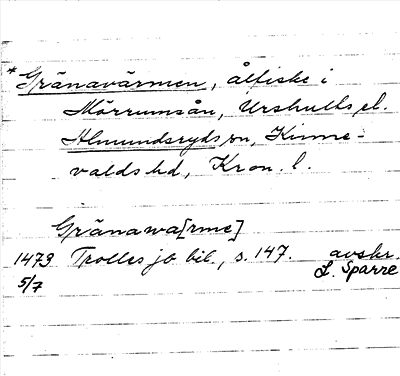 *Gränavärmen, ålfiske i
Mörrumsån, Urshults el.
Almundsryds sn, Kinne-
valds hd, Kron. l.
Gränawa[rme]
1473 Trolles jb bil., s. 147. avskr.
5/7 L. Sparre